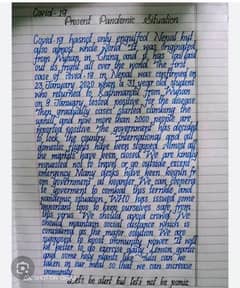 Covid-19
Present Pandemic Situation
Covid-19 hasnot only engulfed Nepal but
also almost whole world. It was originated
from Wuhan, in China and it has spread
out its from all over the world. The first
case of covid-19 in Nepal was confirmed on
23 January 2020 when a 31 year old student
who returned to Kathmandu from Wuhan
on 9 January tested positive for the disease
Then, gradually cases started climbing the
world, and now more than 2000 people are
reported positive. The government has decided
to lock the country. International and all
domestic flights have been stopped. Almost all
the markets have been closed. We are kindly
requested not to travel or go outside except
emergency. Many desks have been kept
government all together. We can cooperate
government to combat this terrible and
pandemic situation. WHO has issued some
important tips to keep ourselves safe from
this virus. We should avoid crowd. We
should maintain social distance which is
considered as the major solution. We are
suggested to boost immunity power. It will
be better to do exercise daily. Lemon, garlic
and some hog plants like can be
taken in our meal so that we can increase
immunity.
Let's be alert but let's not be panic